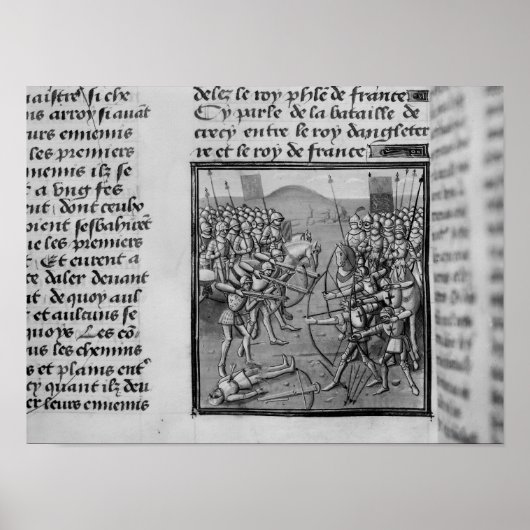 aistre si che
ns arroy si auāt
eurs ennemis
les premiers
nnemis ilz se
t a vng fes
ent dont ceulx
oient sesbahirent
ue les premiers
Et eurent a
ce daler deuant
t de quoy aul
et aulcuns se
quoys Les cō
us les chemins
s et plains ent
cy quant ilz deu
er leurs ennemis
delez le roy phl̄e de france
Cy parle de la bataille de
crecy entre le roy dangleter
re et le roy de france